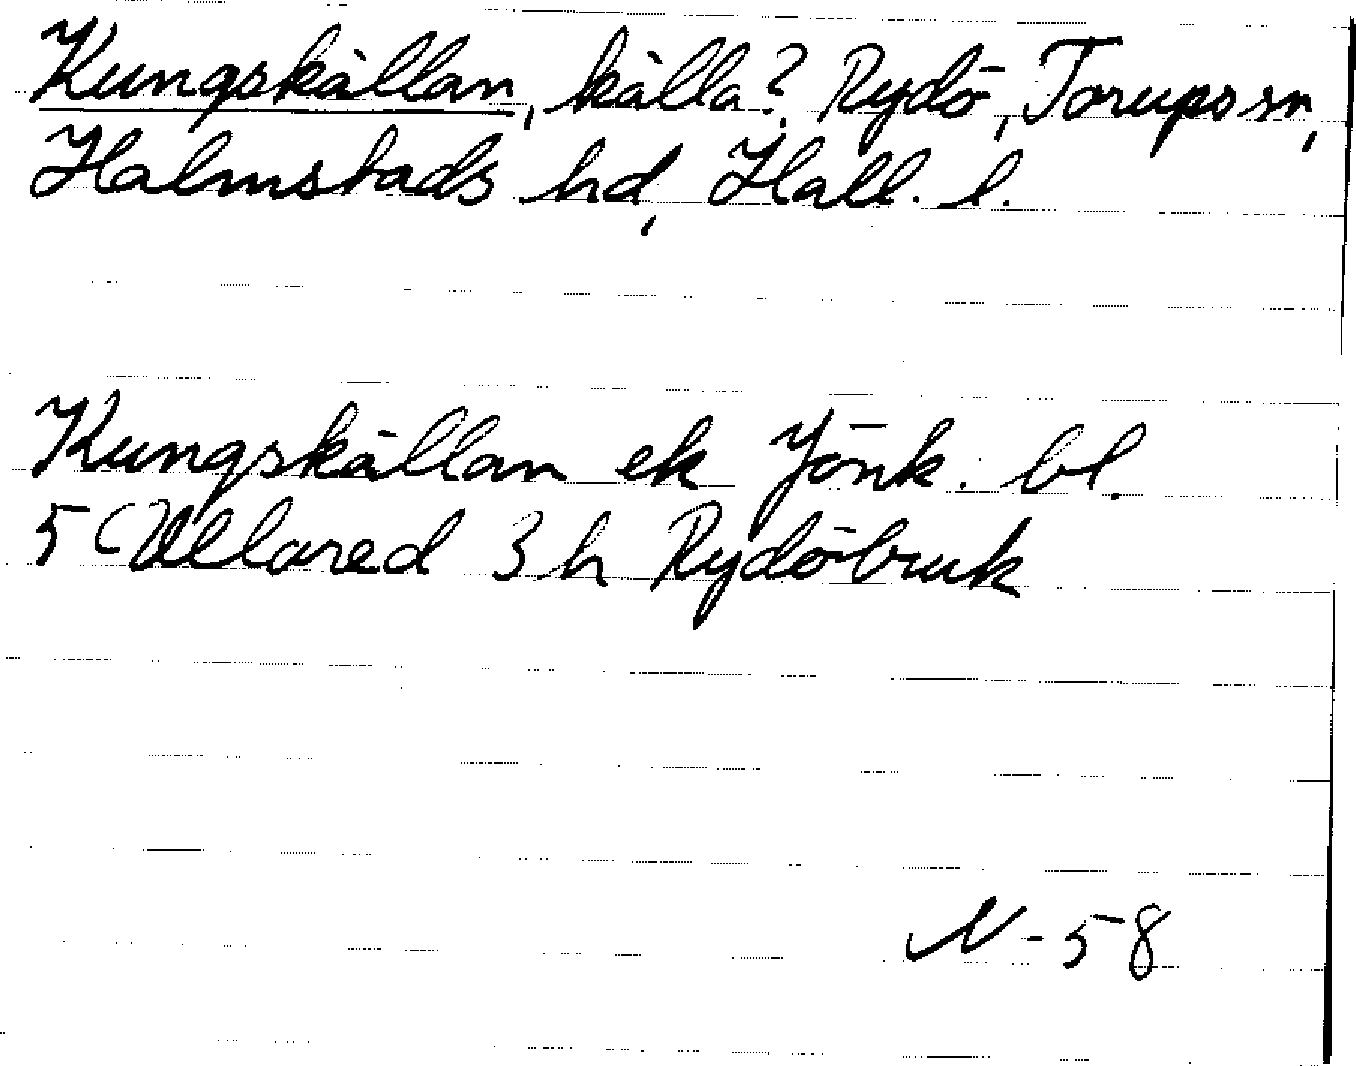 Kungskällan, källa? Rydö, Torups sn,
Halmstads hd, Hall. l.
Kungskällan ek Jönk. bl.
5 Ullared 3 h Rydöbruk
N-58